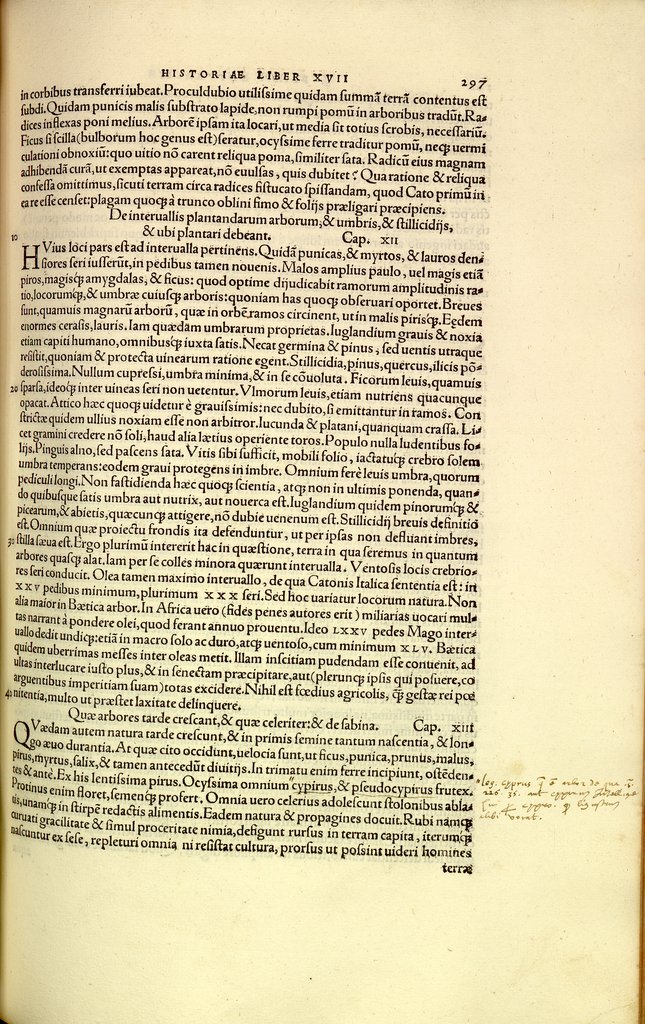 HISTORIAE LIBER XVII
297
in corbibus transferri iubeat. Proculdubio utilissime quidam summā terrā contentus est
subdi. Quidam punicis malis substrato lapide, non rumpi pomū in arboribus tradūt. Ra⸗
dices inflexas poni melius. Arborē ipsam ita locari, ut media sit totius scrobis, necessariū.
Ficus si scilla (bulborum hoc genus est) seratur, ocyssime ferre traditur pomū, neqꝫ uermi
culationi obnoxiū: quo uitio nō carent reliqua poma, similiter sata. Radicū eius magnam
adhibendā curā, ut exemptas appareat, nō euulsas, quis dubitet? Qua ratione & reliqua
confessa omittimus, sicuti terram circa radices fistucato spissandam, quod Cato primū in
ea re esse censet: plagam quoqꝫ à trunco oblini fimo & folijs præligari præcipiens.
De interuallis plantandarum arborum, & umbris, & stillicidijs,
& ubi plantari debeant. Cap. XII
10
HVius loci pars est ad interualla pertinens. Quidā punicas, & myrtos, & lauros den⸗
siores seri iusserūt, in pedibus tamen nouenis. Malos amplius paulo, uel magis etiā
piros, magisqꝫ amygdalas, & ficus: quod optime dijudicabit ramorum amplitudinis ra⸗
tio, locorumqꝫ, & umbræ cuiusqꝫ arboris: quoniam has quoqꝫ obseruari oportet. Breues
sunt, quamuis magnarū arborū, quæ in orbē ramos circinent, ut in malis pirisqꝫ. Eędem
enormes cerasis, lauris. Iam quædam umbrarum proprietas. Iuglandium grauis & noxia
etiam capiti humano, omnibusqꝫ iuxta satis. Necat germina & pinus, sed uentis utraque
resistit, quoniam & protecta uinearum ratione egent. Stillicidia, pinus, quercus, ilicis pō⸗
derosissima. Nullum cupressi, umbra minima, & in se cōuoluta. Ficorum leuis, quamuis
20 sparsa, ideoqꝫ inter uineas seri non uetentur. Vlmorum leuis, etiam nutriens quacunque
opacat. Attico hæc quoqꝫ uidetur è grauissimis: nec dubito, si emittantur in ramos. Con
strictæ quidem ullius noxiam esse non arbitror. Iucunda & platani, quanquam crassa. Li⸗
cet gramini credere nō soli, haud alia lætius operiente toros. Populo nulla ludentibus fo⸗
lijs. Pinguis alno, sed pascens sata. Vitis sibi sufficit, mobili folio, iactatuqꝫ crebro solem
umbra temperans: eodem graui protegens in imbre. Omnium ferè leuis umbra, quorum
pediculi longi. Non fastidienda hæc quoqꝫ scientia, atqꝫ non in ultimis ponenda, quan⸗
do quibusque satis umbra aut nutrix, aut nouerca est. Iuglandium quidem pinorumqꝫ &
picearum, & abietis, quæcunqꝫ attigere, nō dubie uenenum est. Stillicidij breuis definitio
est. Omnium quæ proiectu frondis ita defenduntur, ut per ipsas non defluant imbres,
30 stilla sæua est. Ergo plurimū intererit hac in quæstione, terra in qua seremus in quantum
arbores quasqꝫ alat. Iam per se colles minora quærunt interualla. Ventosis locis crebrio⸗
res seri conducit. Olea tamen maximo interuallo, de qua Catonis Italica sententia est: in
XXV pedibus minimum, plurimum XXX seri. Sed hoc uariatur locorum natura. Non
alia maior in Bætica arbor. In Africa uero (fides penes autores erit) miliarias uocari mul⸗
tas narrant à pondere olei, quod ferant annuo prouentu. Ideo LXXV pedes Mago inter⸗
uallo dedit undiqꝫ: etiā in macro solo ac duro, atqꝫ uentoso, cum minimum XLV. Bætica
quidem uberrimas messes inter oleas metit. Illam inscitiam pudendam esse conuenit, ad
ultas interlucare iusto plus, & in senectam præcipitare, aut (plerunqꝫ ipsis qui posuere, co
arguentibus imperitiam suam) totas excidere. Nihil est fœdius agricolis, q̄ꝫ gestæ rei pœ
40 nitentia, multo ut præstet laxitate delinquere.
Quæ arbores tarde crescant, & quæ celeriter: & de sabina. Cap. XIII
QVædam autem natura tarde crescunt, & in primis semine tantum nascentia, & lon⸗
go æuo durantia. At quæ cito occidunt, uelocia sunt, ut ficus, punica, prunus, malus,
pirus, myrtus, salix, & tamen antecedūt diuitijs. In trimatu enim ferre incipiunt, ostēden⸗
tes & antè. Ex his lentissima pirus. Ocyssima omnium cypirus, & pseudocypirus frutex.
Protinus enim floret, semenqꝫ profert. Omnia uero celerius adolescunt stolonibus abla⸗
tis, unamqꝫ in stirpē redactis alimentis. Eadem natura & propagines docuit. Rubi namqꝫ
curuati gracilitate & simul proceritate nimia, defigunt rursus in terram capita, iterumqꝫ
nascuntur ex sese, repleturi omnia ni resistat cultura, prorsus ut possint uideri homines
terræ